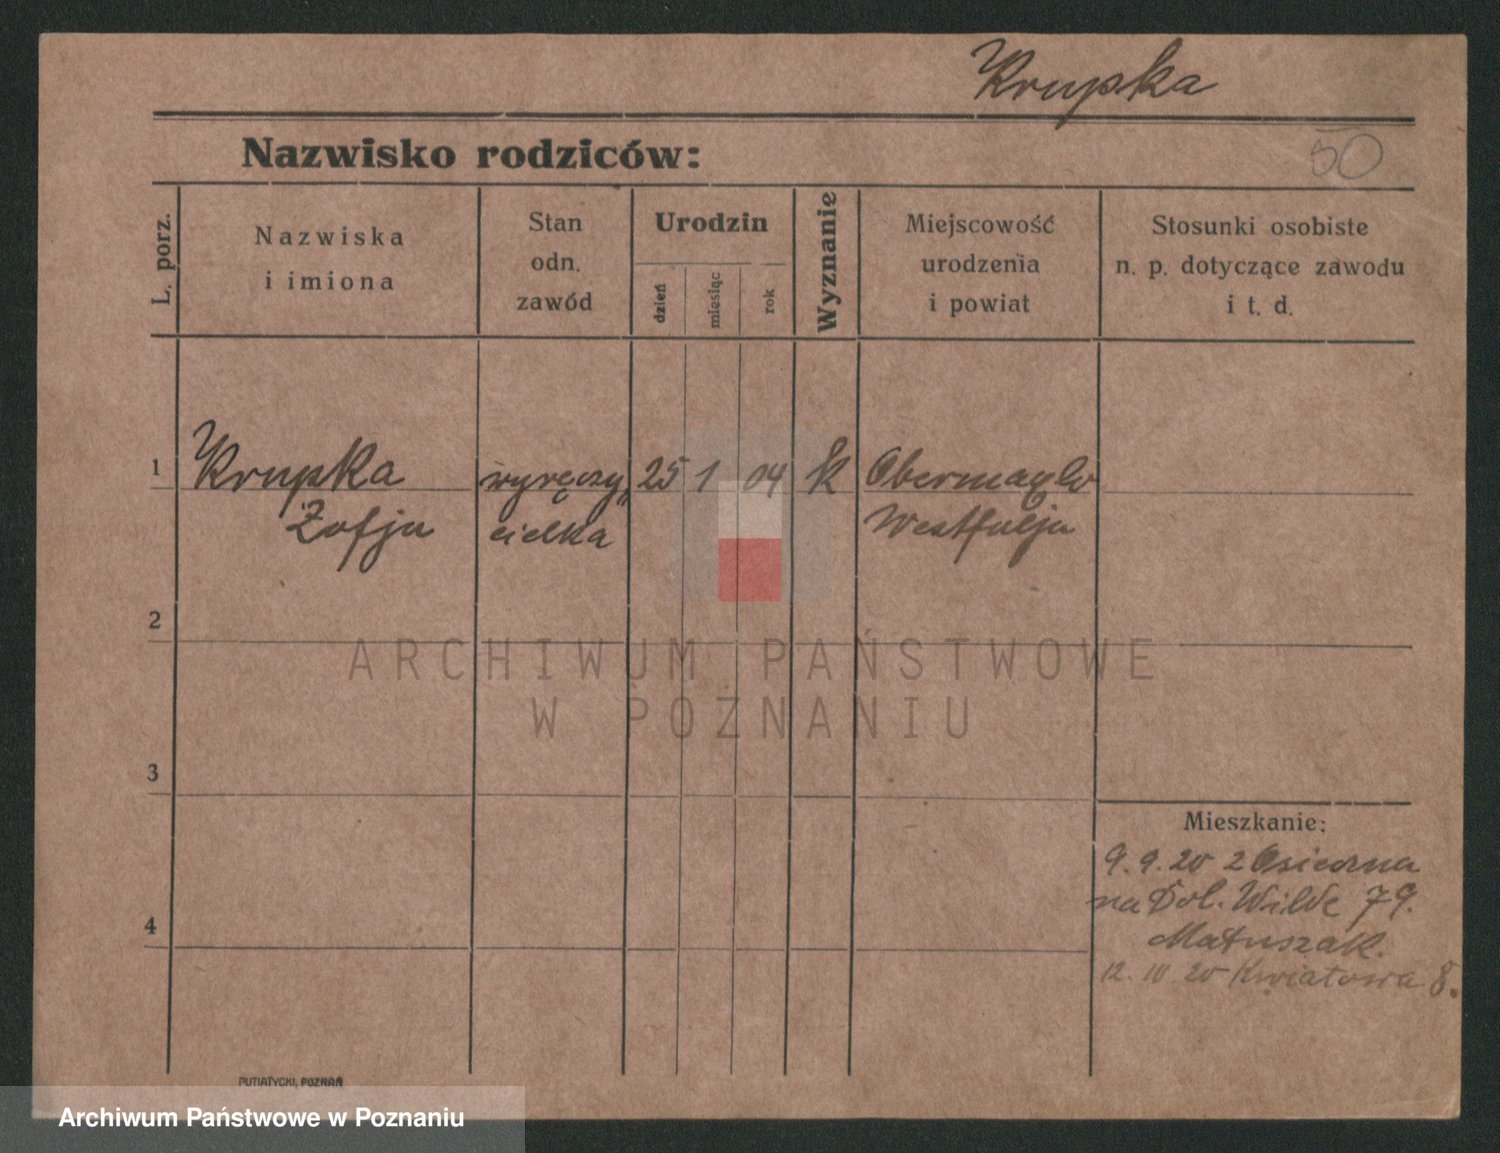 Krupka
50
Nazwisko rodziców:
L. porz.
Nazwiska
i imiona
Stan
odn.
zawód
Urodzin
dzień
miesiąc
rok
Wyznanie
Miejscowość
urodzenia
i powiat
Stosunki osobiste
n. p. dotyczące zawodu
i t. d.
1 Krupka wyręczy„ 25 1 04 k
Zofja cielka Westfalja
2
3
4
Mieszkanie:
9. 9. 20 z Osieczna
na Dol. Wilde 79.
Matuszak.
12. 10 20 Kwiatowa 8.
PUTIATYCKI, POZNAŃ
ARCHIWUM PAŃSTWOWE
W POZNANIU
Archiwum Państwowe w Poznaniu